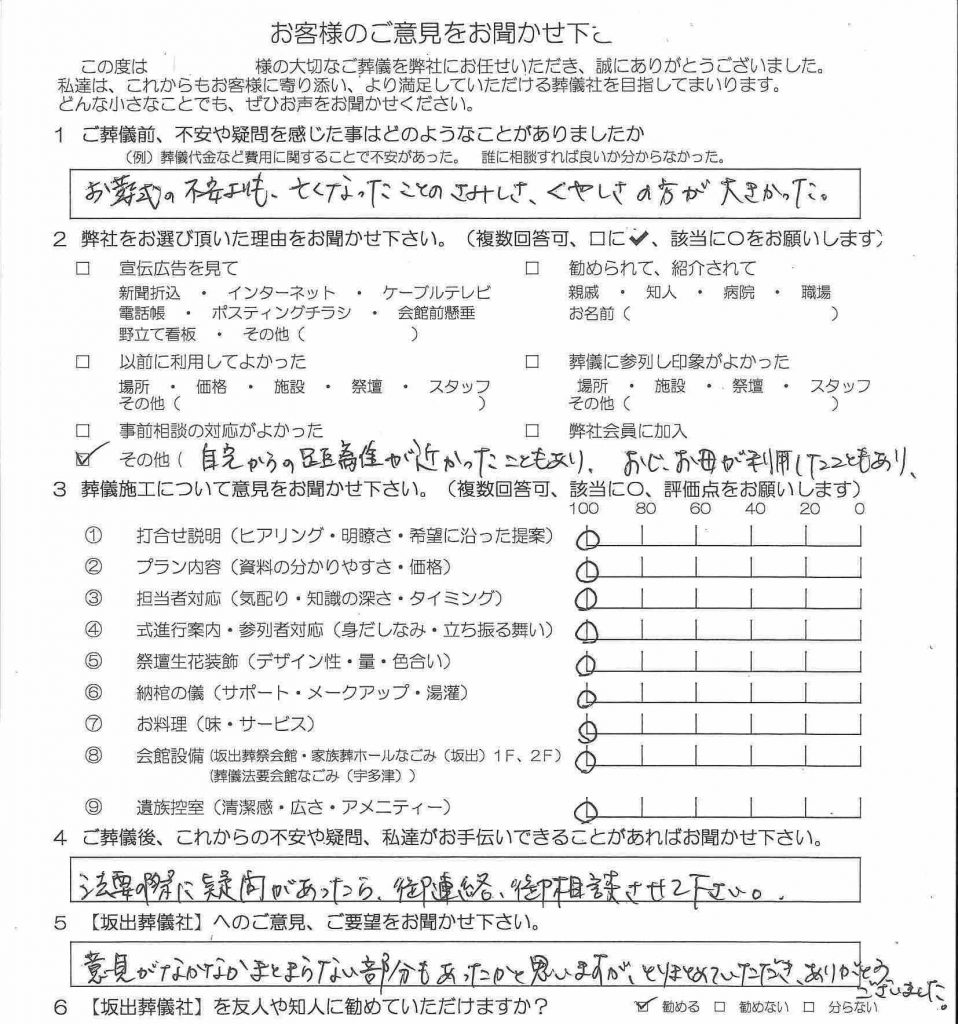 お客様のご意見をお聞かせ下さ
この度は 様の大切なご葬儀を弊社にお任せいただき、誠にありがとうございました。
私達は、これからもお客様に寄り添い、より満足していただける葬儀社を目指してまいります。
どんな小さなことでも、ぜひお声をお聞かせください。
1 ご葬儀前、不安や疑問を感じた事はどのようなことがありましたか
（例）葬儀代金など費用に関することで不安があった。 誰に相談すれば良いか分からなかった。
お葬式の不安よりも、亡くなったことのさみしさ、くやしさの方が大きかった。
2 弊社をお選び頂いた理由をお聞かせ下さい。（複数回答可、□に✔、該当に○をお願いします）
□ 宣伝広告を見て □ 勧められて、紹介されて
新聞折込 ・ インターネット ・ ケーブルテレビ 親戚 ・ 知人 ・ 病院 ・ 職場
電話帳 ・ ポスティングチラシ ・ 会館前懸垂 お名前（ ）
野立て看板 ・ その他（ ）
□ 以前に利用してよかった □ 葬儀に参列し印象がよかった
場所 ・ 価格 ・ 施設 ・ 祭壇 ・ スタッフ 場所 ・ 施設 ・ 祭壇 ・ スタッフ
その他（ ） その他（ ）
□ 事前相談の対応がよかった □ 弊社会員に加入
☑ その他（ 自宅からの距離が近かったこともあり、おじ、お母が利用したこともあり、
3 葬儀施工について意見をお聞かせ下さい。（複数回答可、該当に○、評価点をお願いします）
100 80 60 40 20 0
① 打合せ説明（ヒアリング・明瞭さ・希望に沿った提案）
② プラン内容（資料の分かりやすさ・価格）
③ 担当者対応（気配り・知識の深さ・タイミング）
④ 式進行案内・参列者対応（身だしなみ・立ち振る舞い）
⑤ 祭壇生花装飾（デザイン性・量・色合い）
⑥ 納棺の儀（サポート・メークアップ・湯灌）
⑦ お料理（味・サービス）
⑧ 会館設備（坂出葬祭会館・家族葬ホールなごみ（坂出）1F、2F）
（葬儀法要会館なごみ（宇多津））
⑨ 遺族控室（清潔感・広さ・アメニティー）
4 ご葬儀後、これからの不安や疑問、私達がお手伝いできることがあればお聞かせ下さい。
法要の際に疑問があったら、御連絡、御相談させて下さい。
5 【坂出葬儀社】へのご意見、ご要望をお聞かせ下さい。
意見がなかなかまとまらない部分もあったかと思いますが、とりまとめていただき、ありがとう
ございました。
6 【坂出葬儀社】を友人や知人に勧めていただけますか？ ☑ 勧める □ 勧めない □ 分らない